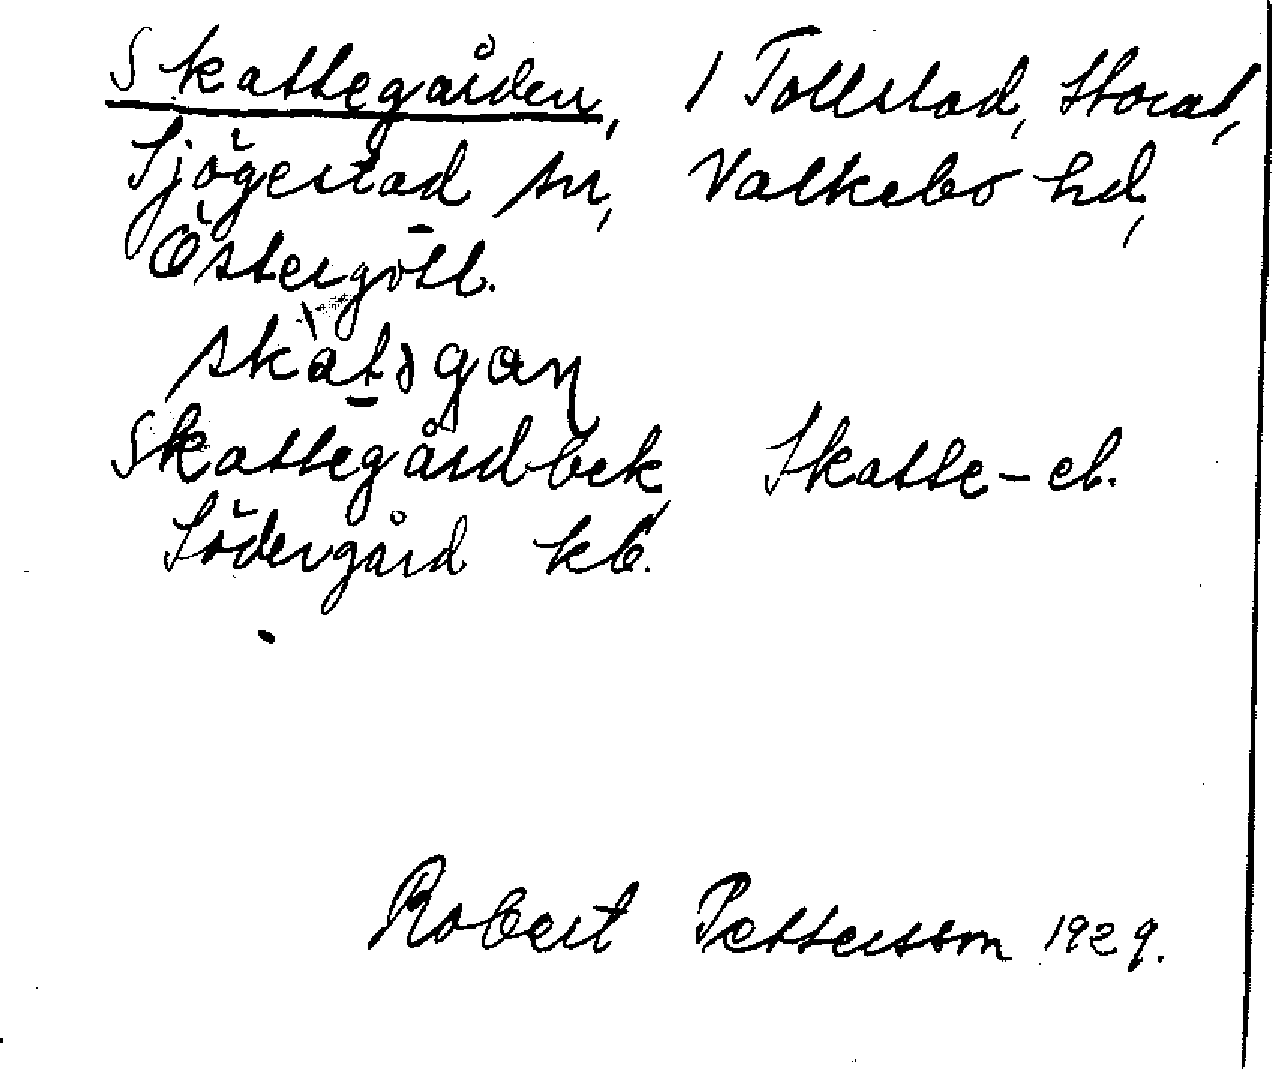 Skattegården, 1 Tollstad, Storat,
Sjögestad sn, Valkebo hd,
Östergötl.
Skattegård bek, Skatte- el.
Södergård kb.
Robert Pettersson 1929.